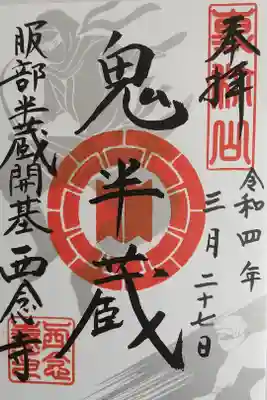 奉拝
令和四年
三月二十七日
鬼半蔵
服部半蔵開基 西念寺